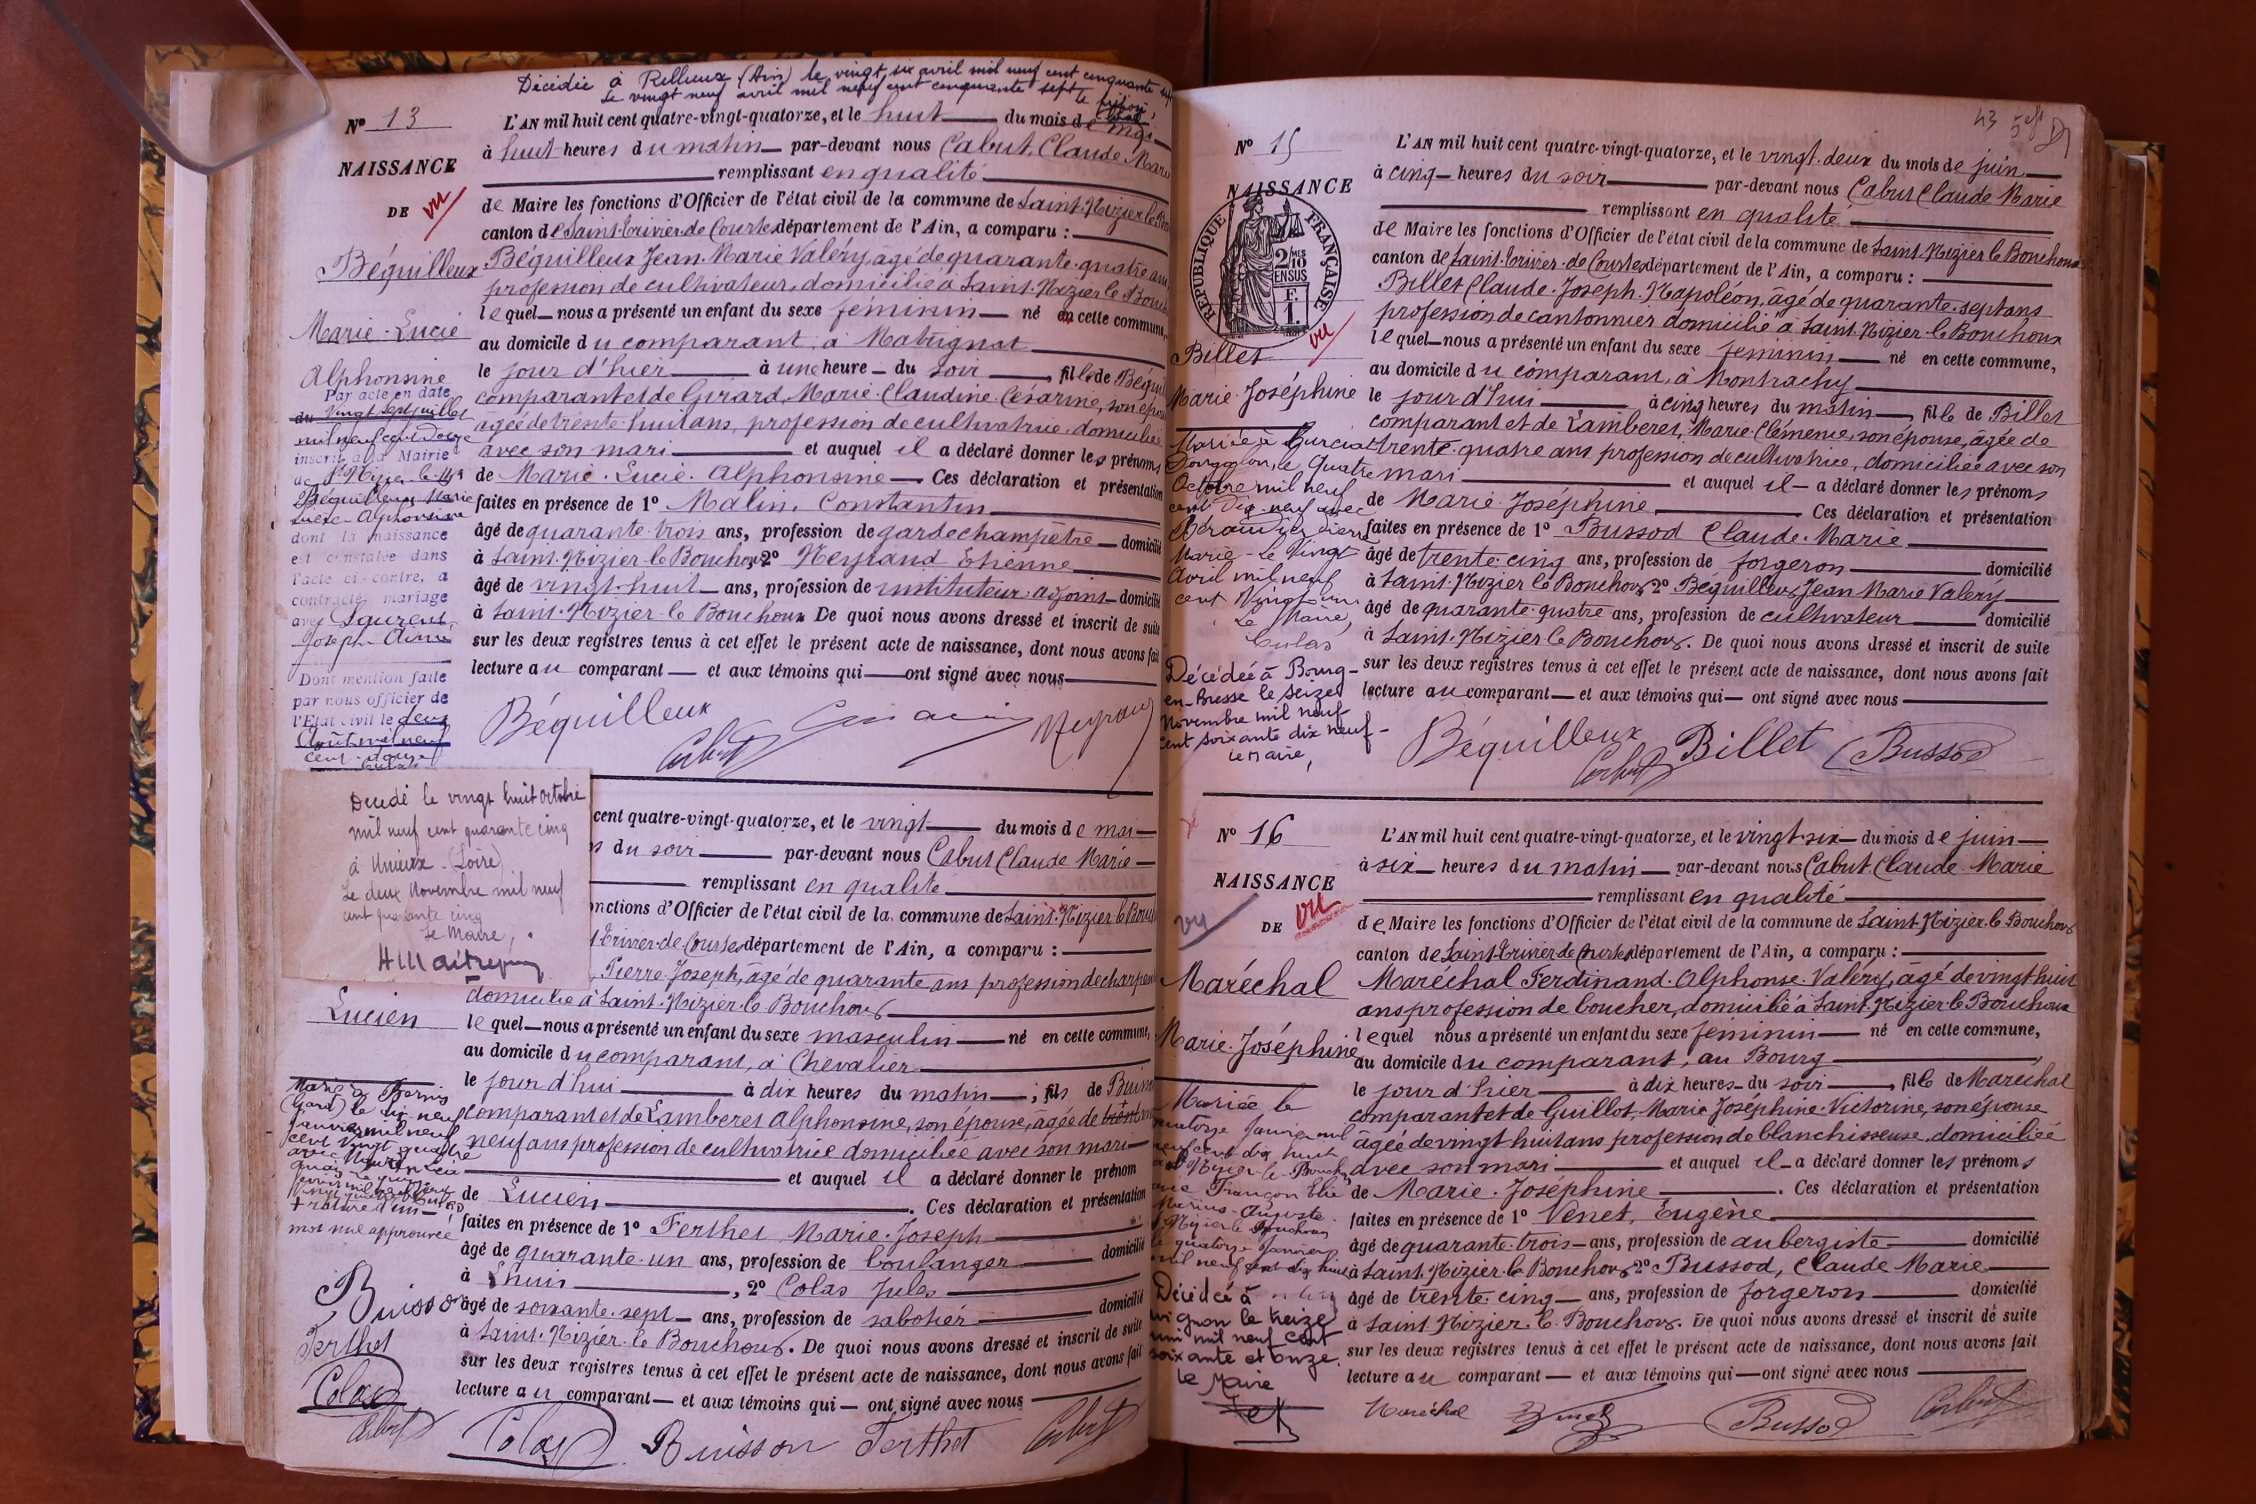 Décédée à Rillieux (Ain) le vingt six avril mil neuf cent cinquante sept
Le vingt neuf avril mil neuf cent cinquante sept
N° 13
NAISSANCE
DE
vu
Béguilleux
Marie-Lucie
Alphonsine
Par acte en date
du vingt sept juillet
mil neuf cent douze
inscrit à la Mairie
de St Nizier-le-Bx
Béguilleux Marie
Lucie-Alphonsine
dont la naissance
est constatée dans
l'acte ci-contre, a
contracté mariage
avec Laurent
Joseph Aimé
Dont mention faite
par nous officier de
l'Etat civil le deux
Août mil neuf
cent douze
L'AN mil huit cent quatre-vingt-quatorze, et le huit du mois de mai
à huit heures du matin par-devant nous Cabut, Claude Marie
remplissant en qualité
de Maire les fonctions d'Officier de l'état civil de la commune de Saint-Nizier-le-Bou
canton de Saint-Trivier-de-Courtes département de l'Ain, a comparu :
Béguilleux Jean-Marie Valéry, âgé de quarante-quatre ans
profession de cultivateur, domicilié à Saint-Nizier le Bouch
lequel nous a présenté un enfant du sexe féminin né en cette commune,
au domicile du comparant, à Matrignat
le jour d'hier à une heure du soir, fille de Béguil
comparant et de Girard, Marie-Claudine Césarine, son épou
âgée de trente-huit ans, profession de cultivatrice domiciliée
avec son mari et auquel il a déclaré donner les prénoms
de Marie-Lucie-Alphonsine. Ces déclaration et présentation
faites en présence de 1° Malin, Constantin
âgé de quarante-trois ans, profession de garde champêtre domicilié
à Saint-Nizier-le Bouchoux 2° Neyraud Etienne
âgé de vingt-huit ans, profession de instituteur-adjoint domicilié
à Saint-Nizier-le Bouchoux De quoi nous avons dressé et inscrit de suite
sur les deux registres tenus à cet effet le présent acte de naissance, dont nous avons fait
lecture au comparant et aux témoins qui ont signé avec nous
Béguilleux Cabut Neyraud
Décédé le vingt huit Octobre
mil neuf cent quarante cinq
à Unieux (Loire)
Le deux Novembre mil neuf
cent quarante cinq
Le Maire,
Lucien
Marié à Bernis
(Gard) le dix neuf
janvier mil neuf
cent vingt quatre
+ rature d'un
mot nul approuvée
Buisson
Ferthet
Colas
Cabut
cent quatre-vingt-quatorze, et le vingt du mois de mai
s du soir par-devant nous Cabut Claude Marie
remplissant en qualité
nctions d'Officier de l'état civil de la commune de Saint-Nizier-le Bouc
Trivier-de-Courtes département de l'Ain, a comparu :
Pierre-Joseph, âgé de quarante ans profession de charpen
domicilié à Saint-Nizier-le Bouchoux
lequel nous a présenté un enfant du sexe masculin né en cette commune,
au domicile du comparant, à Chevalier
le jour d'hui à dix heures du matin ; fils de Buiss
comparant et de Lamberet Alphonsine, son épouse, âgée de
neuf ans profession de cultivatrice domiciliée avec son mari
et auquel il a déclaré donner le prénom
de Lucien. Ces déclaration et présentation
faites en présence de 1° Ferthet Marie-Joseph
âgé de quarante-un ans, profession de boulanger domicilié
à Lhuis, 2° Colas Jules
âgé de soixante-sept ans, profession de sabotier domicilié
à Saint-Nizier-le Bouchoux. De quoi nous avons dressé et inscrit de suite
sur les deux registres tenus à cet effet le présent acte de naissance, dont nous avons fait
lecture au comparant et aux témoins qui ont signé avec nous
Colas Buisson Ferthet Cabut
43
N° 15
NAISSANCE
REPUBLIQUE FRANÇAISE
2/MES
10
EN SUS
vu
Billet
Marie-Joséphine
Mariée à Curciat
Dongalon, le Quatre
Octobre mil neuf
cent Dix-neuf avec
Marie-Le Vingt
Avril mil neuf
cent Vingt-un
Le Maire,
Colas
Décédée à Bourg-
en-Bresse le seize
Novembre mil neuf
cent soixante dix neuf-
Le Maire,
L'AN mil huit cent quatre-vingt-quatorze, et le vingt-deux du mois de juin
à cinq heures du soir par-devant nous Cabut Claude Marie
remplissant en qualité
de Maire les fonctions d'Officier de l'état civil de la commune de Saint-Nizier le Bouchoux
canton de Saint-Trivier-de-Courtes département de l'Ain, a comparu :
Billet Claude-Joseph-Napoléon, âgé de quarante-sept ans
profession de cantonnier domicilié à Saint-Nizier-le Bouchoux
lequel nous a présenté un enfant du sexe féminin né en cette commune,
au domicile du comparant, à Montrachy
le jour d'hui à cinq heures du matin, fille de Billet
comparant et de Lamberet, Marie Clémence, son épouse, âgée de
trente-quatre ans profession de cultivatrice, domiciliée avec son
mari et auquel il a déclaré donner les prénoms
de Marie-Joséphine Ces déclaration et présentation
faites en présence de 1° Bussod Claude-Marie
âgé de trente-cinq ans, profession de forgeron domicilié
à Saint-Nizier le Bouchoux 2° Béguilleux Jean Marie Valéry
âgé de quarante-quatre ans, profession de cultivateur domicilié
à Saint-Nizier le Bouchoux. De quoi nous avons dressé et inscrit de suite
sur les deux registres tenus à cet effet le présent acte de naissance, dont nous avons fait
lecture au comparant et aux témoins qui ont signé avec nous
Béguilleux Cabut Billet Bussod
N° 16
NAISSANCE
DE
vu
vu
Maréchal
Marie-Joséphine
Mariée le
quatorze Janvier mil
neuf cent dix huit
à St Nizier-le-Bouch
François Elie
Marius-Auguste
St Nizier le Bouchoux
le quatorze Janvier
mil neuf cent dix huit
Décédée à
Avignon le treize
mil neuf cent
soixante et onze.
Le Maire
L'AN mil huit cent quatre-vingt-quatorze, et le vingt-six du mois de juin
à six heures du matin par-devant nous Cabut Claude-Marie
remplissant en qualité
de Maire les fonctions d'Officier de l'état civil de la commune de Saint-Nizier-le Bouchoux
canton de Saint-Trivier de Courtes département de l'Ain, a comparu :
Maréchal Ferdinand-Alphonse-Valéry, âgé de vingt-huit
ans profession de boucher, domicilié à Saint-Nizier le Bouchoux
lequel nous a présenté un enfant du sexe féminin né en cette commune,
au domicile du comparant, au Bourg
le jour d'hier à dix heures du soir, fille de Maréchal
comparant et de Guillot, Marie Joséphine-Victorine, son épouse
âgée de vingt-huit ans profession de blanchisseuse domiciliée
avec son mari et auquel il a déclaré donner les prénoms
de Marie-Joséphine. Ces déclaration et présentation
faites en présence de 1° Venet, Eugène
âgé de quarante-trois ans, profession de aubergiste domicilié
à Saint-Nizier-le Bouchoux 2° Bussod, Claude Marie
âgé de trente-cinq ans, profession de forgeron domicilié
à Saint Nizier-le-Bouchoux. De quoi nous avons dressé et inscrit de suite
sur les deux registres tenus à cet effet le présent acte de naissance, dont nous avons fait
lecture au comparant et aux témoins qui ont signé avec nous
Maréchal Venet Bussod Cabut